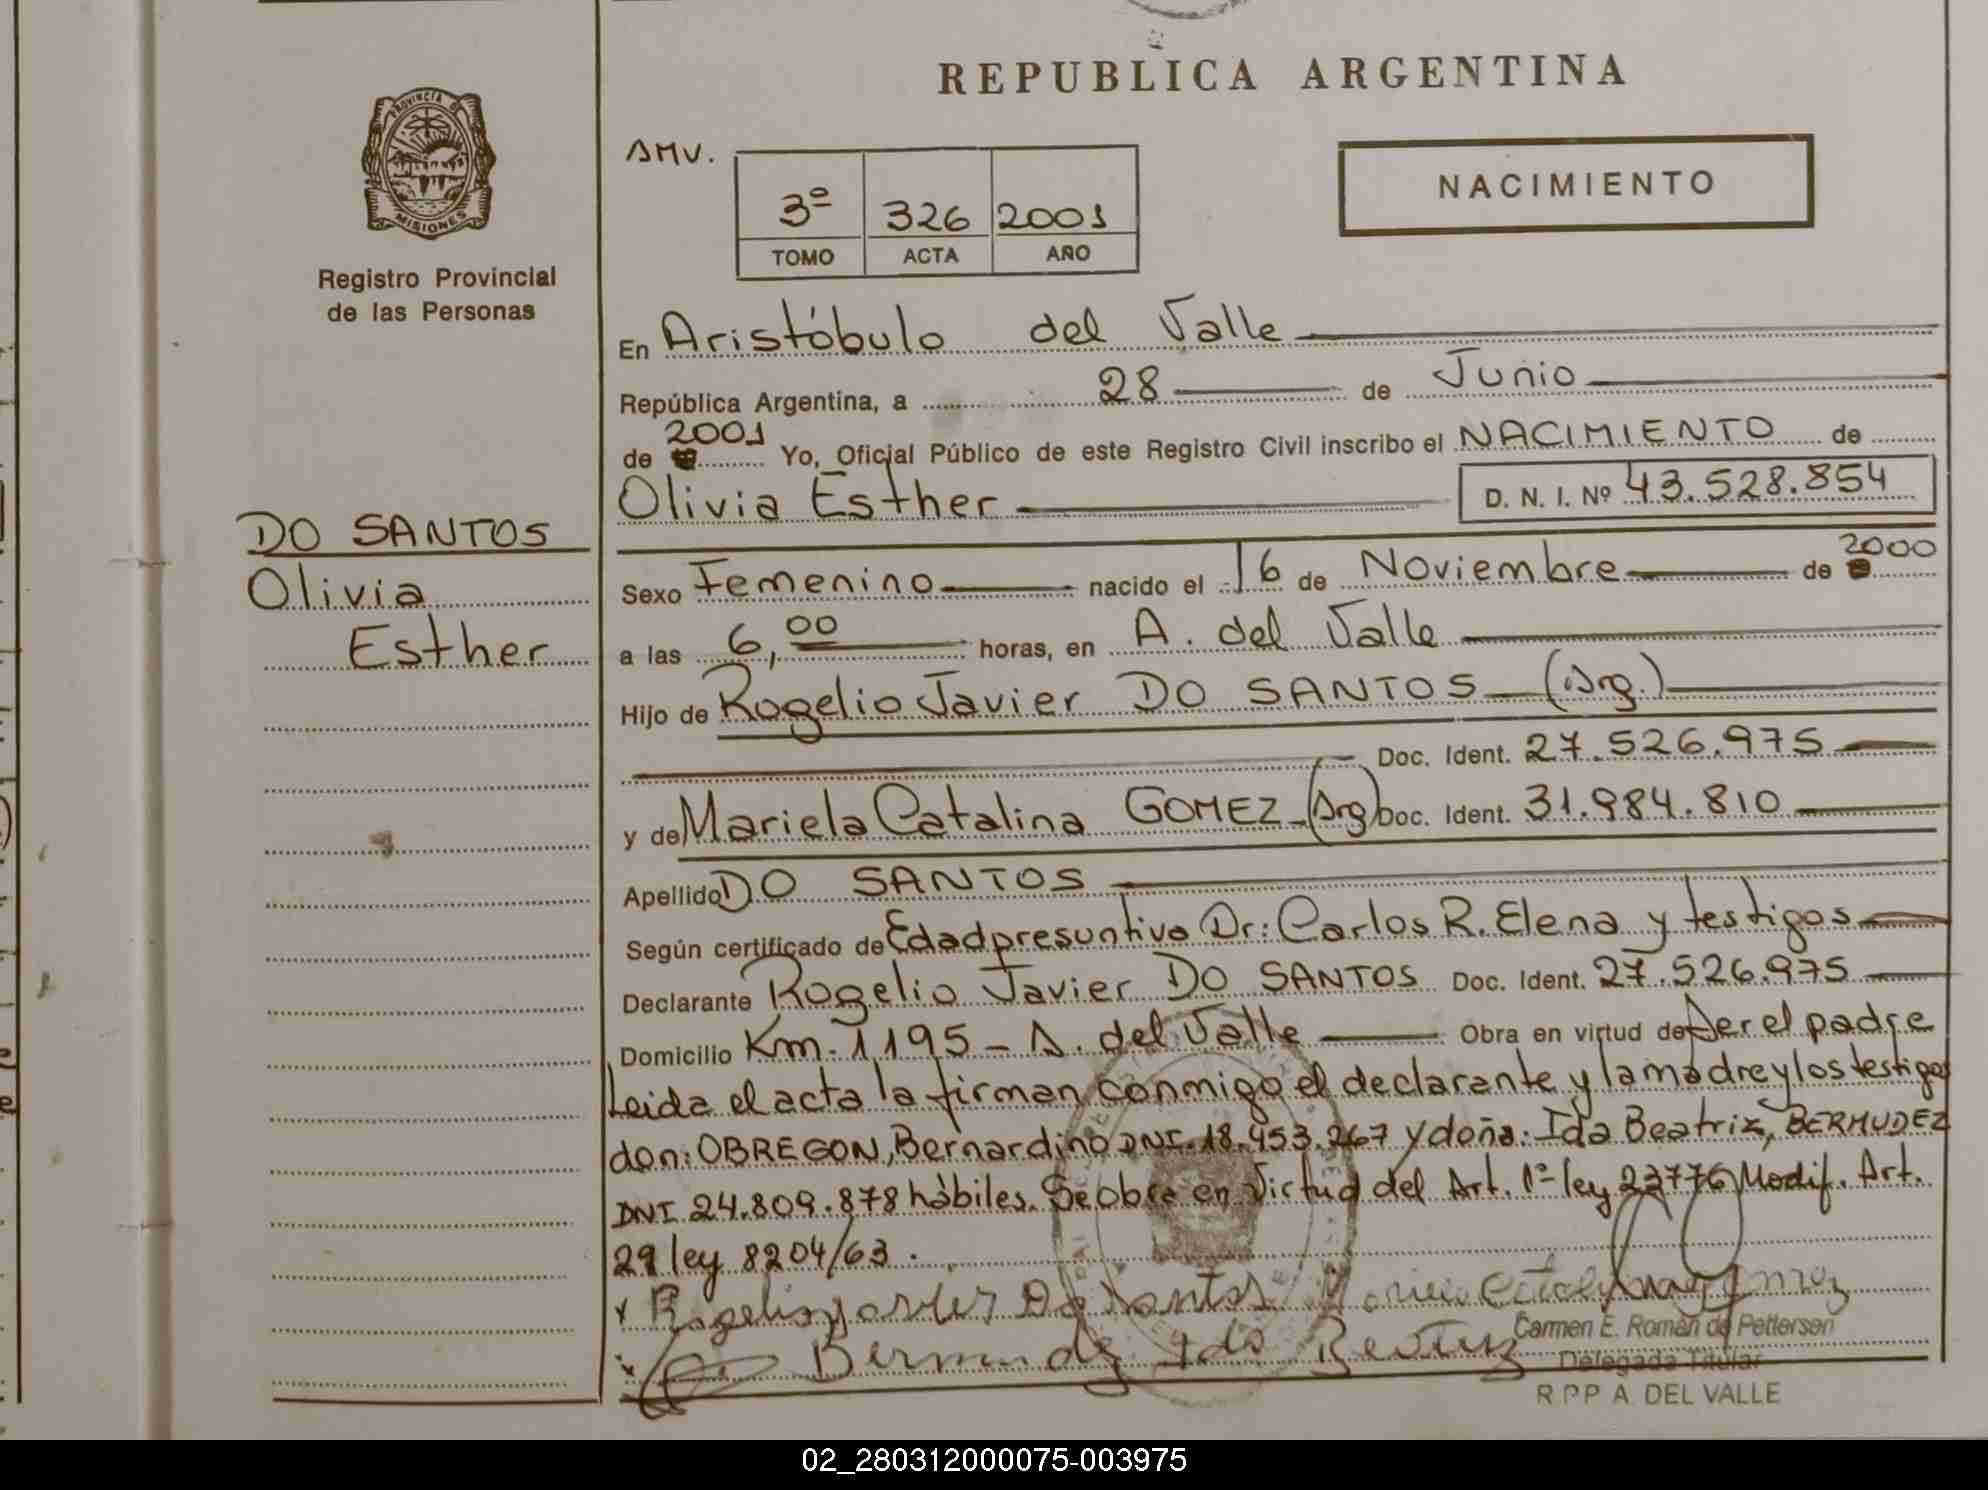 REPUBLICA ARGENTINA
PROVINCIA D
MISIONES
Registro Provincial
de las Personas
AMV.
3º 326 2001
TOMO ACTA AÑO
NACIMIENTO
En Aristóbulo del Valle
República Argentina, a 28 de Junio
de 2001 Yo, Oficial Público de este Registro Civil inscribo el NACIMIENTO de
Olivia Esther D. N. I. Nº 43.528.854
DO SANTOS
Olivia
Esther
Sexo Femenino nacido el 16 de Noviembre de 2000
a las 6,00 horas, en A. del Valle
Hijo de Rogelio Javier DO SANTOS (Arg.)
Doc. Ident. 27.526.975
y de Mariela Catalina GOMEZ (Arg) Doc. Ident. 31.984.810
Apellido DO SANTOS
Según certificado de Edad presuntiva Dr: Carlos R. Elena y testigos
Declarante Rogelio Javier DO SANTOS Doc. Ident. 27.526.975
Domicilio Km. 1195 - A. del Valle Obra en virtud de Ser el padre
Leida el acta la firman conmigo el declarante y la madre y los testigos
don: OBREGON, Bernardino DNI. 18.453.267 y doña: Ida Beatriz, BERMUDEZ
DNI 24.809.878 hàbiles. Se obra en Virtud del Art. 1º ley 22776 Modif. Art.
29 ley 8204/63.
x Rogelio Javier Do Santos Mariela Catalina Gomez
x Bermudez Ida Beatriz
Carmen E. Román de Pettersen
Delegada Titular
R P P A DEL VALLE
02_280312000075-003975